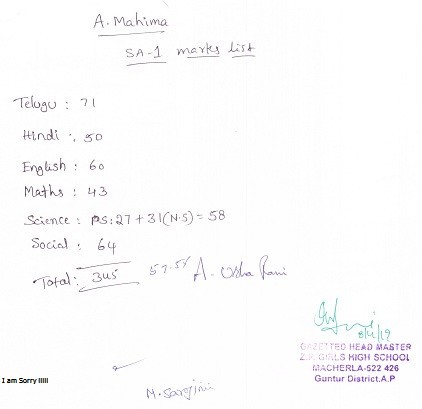 A. Mahima
SA-1 marks list
Telugu : 71
Hindi : 50
English : 60
Maths : 43
Science : PS:27 + 31(N.S) = 58
Social : 64
Total : 345 57.5% A. Usha Rani
8/11/19
GAZETTED HEAD MASTER
Z.P. GIRLS HIGH SCHOOL
MACHERLA-522 426
Guntur District.A.P
I am Sorry lllll
M. Sarojini